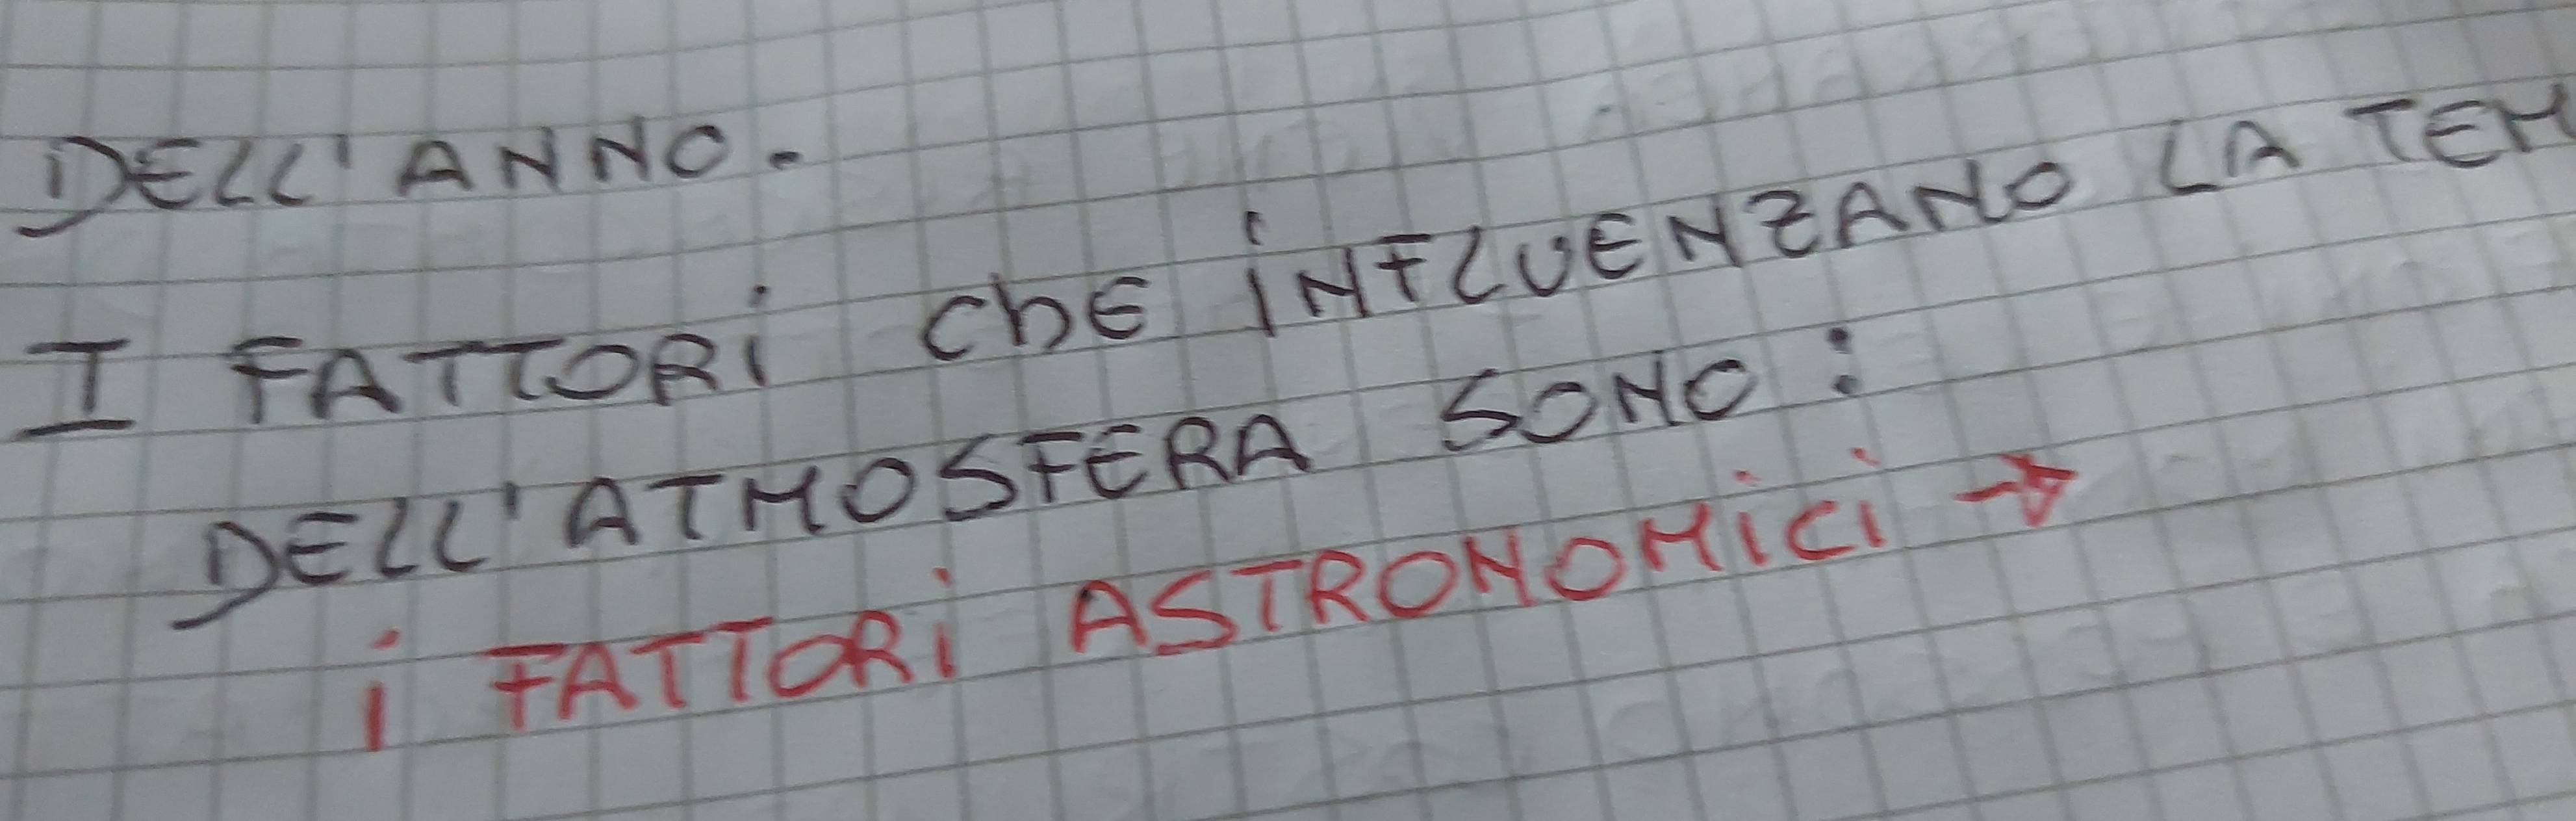 DELL'ANNO.
I FATTORi ChE iNFLUENZANO LA TEM
DELL'ATMOSFERA SONO:
i FATTORi ASTRONOMiCi →